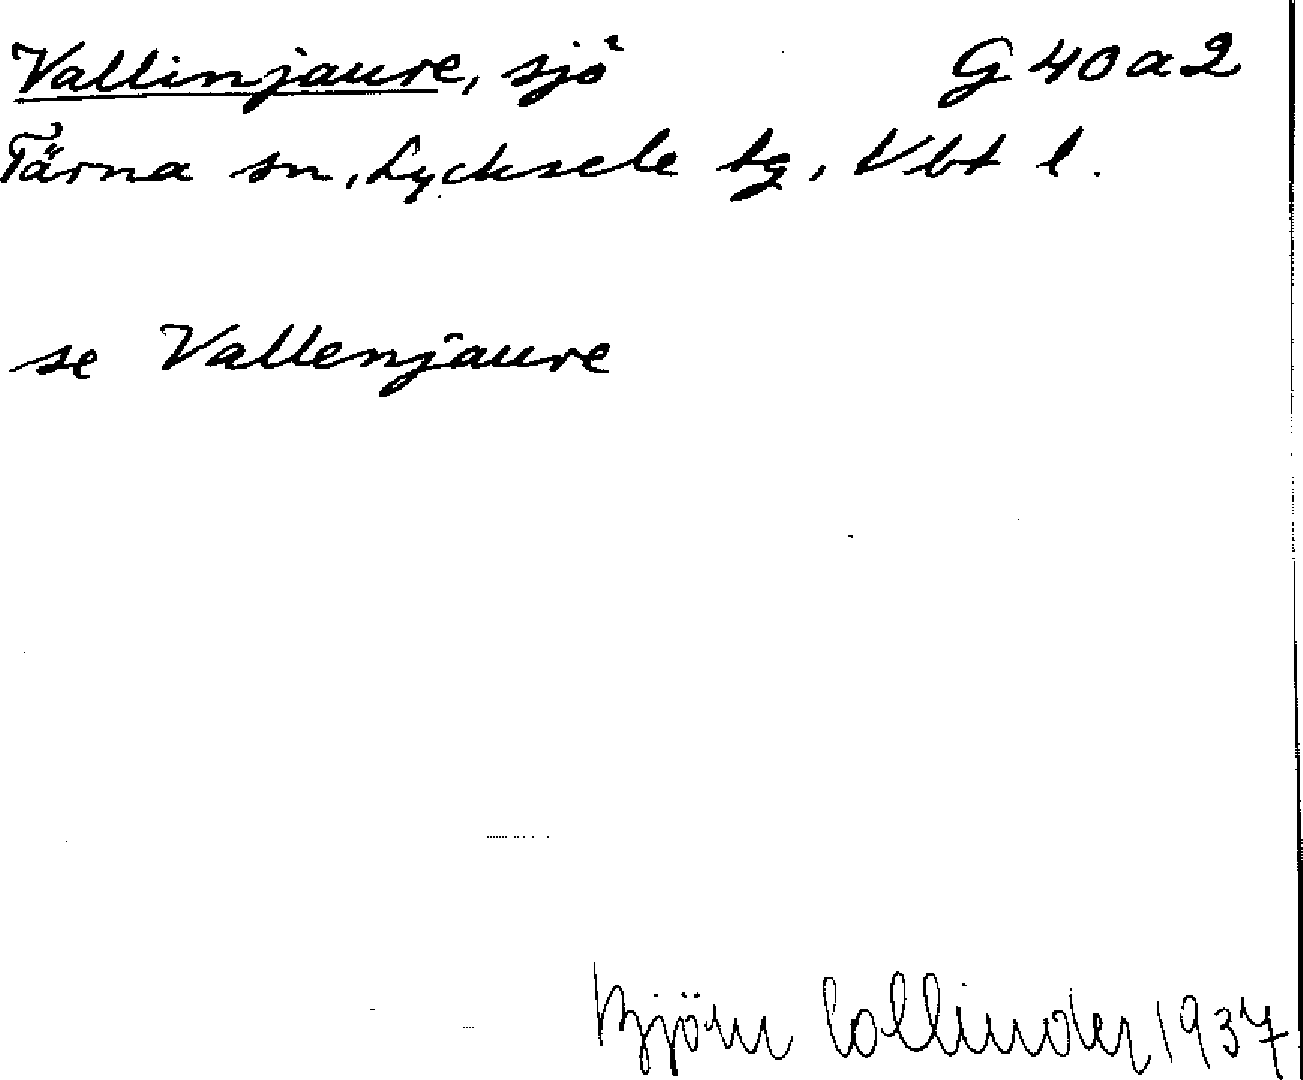 Vallinjaure, sjö G 40 a 2
Tärna sn, Lycksele tg, Vbt l.
se Vallenjaure
Björn Collinder 1937